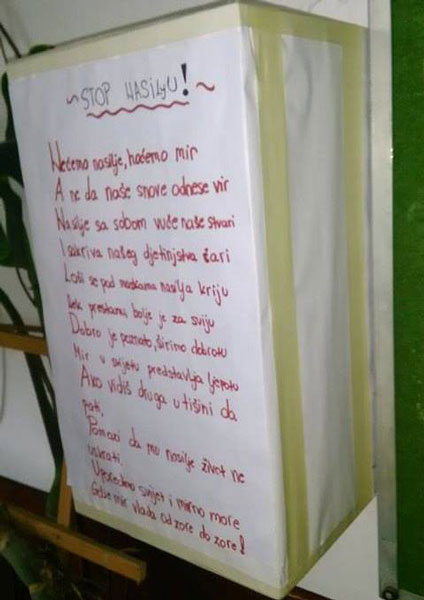 ~STOP NASILJU!~
Nećemo nasilje, hoćemo mir
A ne da naše snove odnese vir
Nasilje sa sobom vuče naše stvari
I sakriva našeg djetinjstva čari
Loši se pod maskama nasilja kriju
Nek prestanu, bolje je za sviju
Dobro je poznato, širimo dobrotu
Mir u svijetu predstavlja ljepotu
Ako vidiš druga u tišini da
pati,
Pomozi da mu nasilje život ne
uskrati.
svijet i mirno more
Gdje mir vlada od zore do zore!